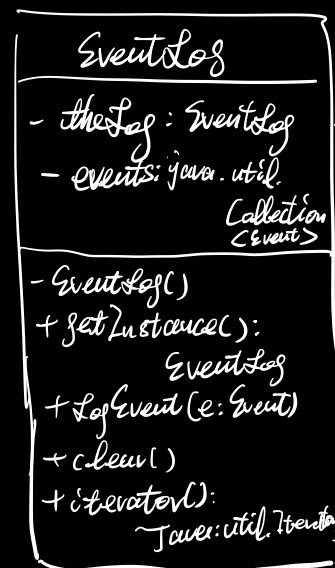 EventLog
- theLog : EventLog
- events: java.util.
Collection
<Event>
- EventLog()
+ getInstance():
EventLog
+ LogEvent(e: Event)
+ clear()
+ iterator():
Java.util.Iterator